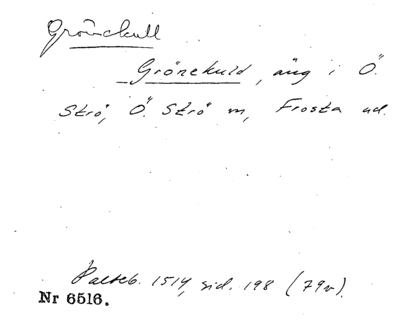 Grönekull
Grönekuld, äng i Ö.
Strö, Ö. Strö sn, Frosta hd.
Palteb. 1514, sid. 198 (79v).
Nr 6516.